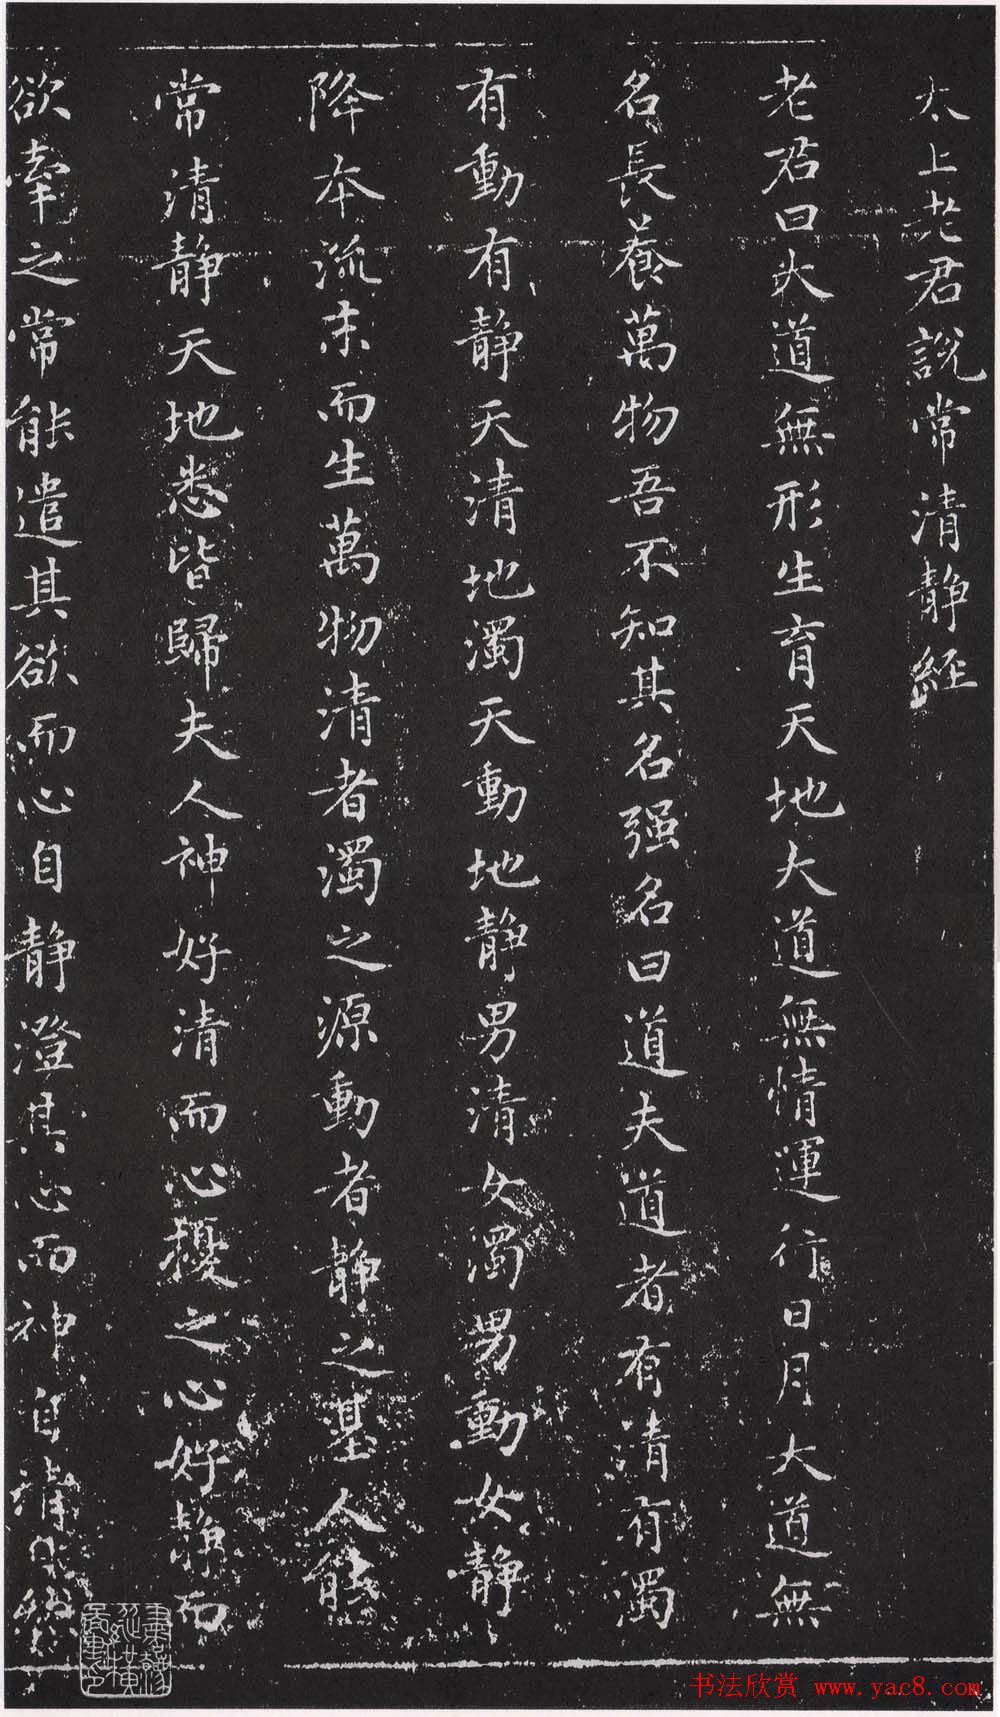 太上老君說常清静經
老君曰大道無形生育天地大道無情運行日月大道無
名長養萬物吾不知其名强名曰道夫道者有清有濁
有動有静天清地濁天動地静男清女濁男動女静
降本流末而生萬物清者濁之源動者静之基人能
常清静天地悉皆歸夫人神好清而心擾之心好静而
欲牽之常能遣其欲而心自静澄其心而神自清自然
书法欣赏 www.yac8.com